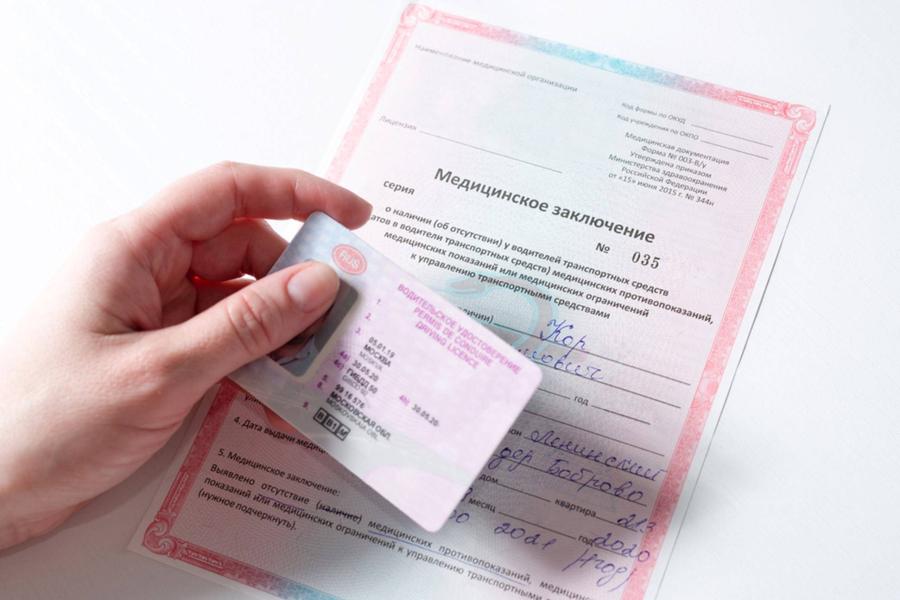 Наименование медицинской организации
Код формы по ОКУД
Код учреждения по ОКПО
Лицензия
Медицинская документация
Форма № 003-В/у
Утверждена приказом
Министерства здравоохранения
Российской Федерации
от «15» июня 2015 г. № 344н
Медицинское заключение
серия № 035
о наличии (об отсутствии) у водителей транспортных средств
в водители транспортных средств) медицинских противопоказаний,
медицинских показаний или медицинских ограничений
к управлению транспортными средствами
Кор
год
Ленинский
дер Боброво
дом квартира 213
месяц год 2020
2021 (1год)
4. Дата выдачи
5. Медицинское заключение:
Выявлено отсутствие (наличие) медицинских противопоказаний,
показаний или медицинских ограничений к управлению транспортными
(нужное подчеркнуть).
RUS
ВОДИТЕЛЬСКОЕ УДОСТОВЕРЕНИЕ
PERMIS DE CONDUIRE
DRIVING LICENCE
1.
2.
3. 05.01.19
МОСКВА
MOSKVA
4a) 30.05.20 4b) 30.05.20
4c) ГИБДД 50
GIBDD 50
5. 99 16 576
8. МОСКОВСКАЯ ОБЛ.
MOSKOVSKAIA OBL.
9. B B1 M